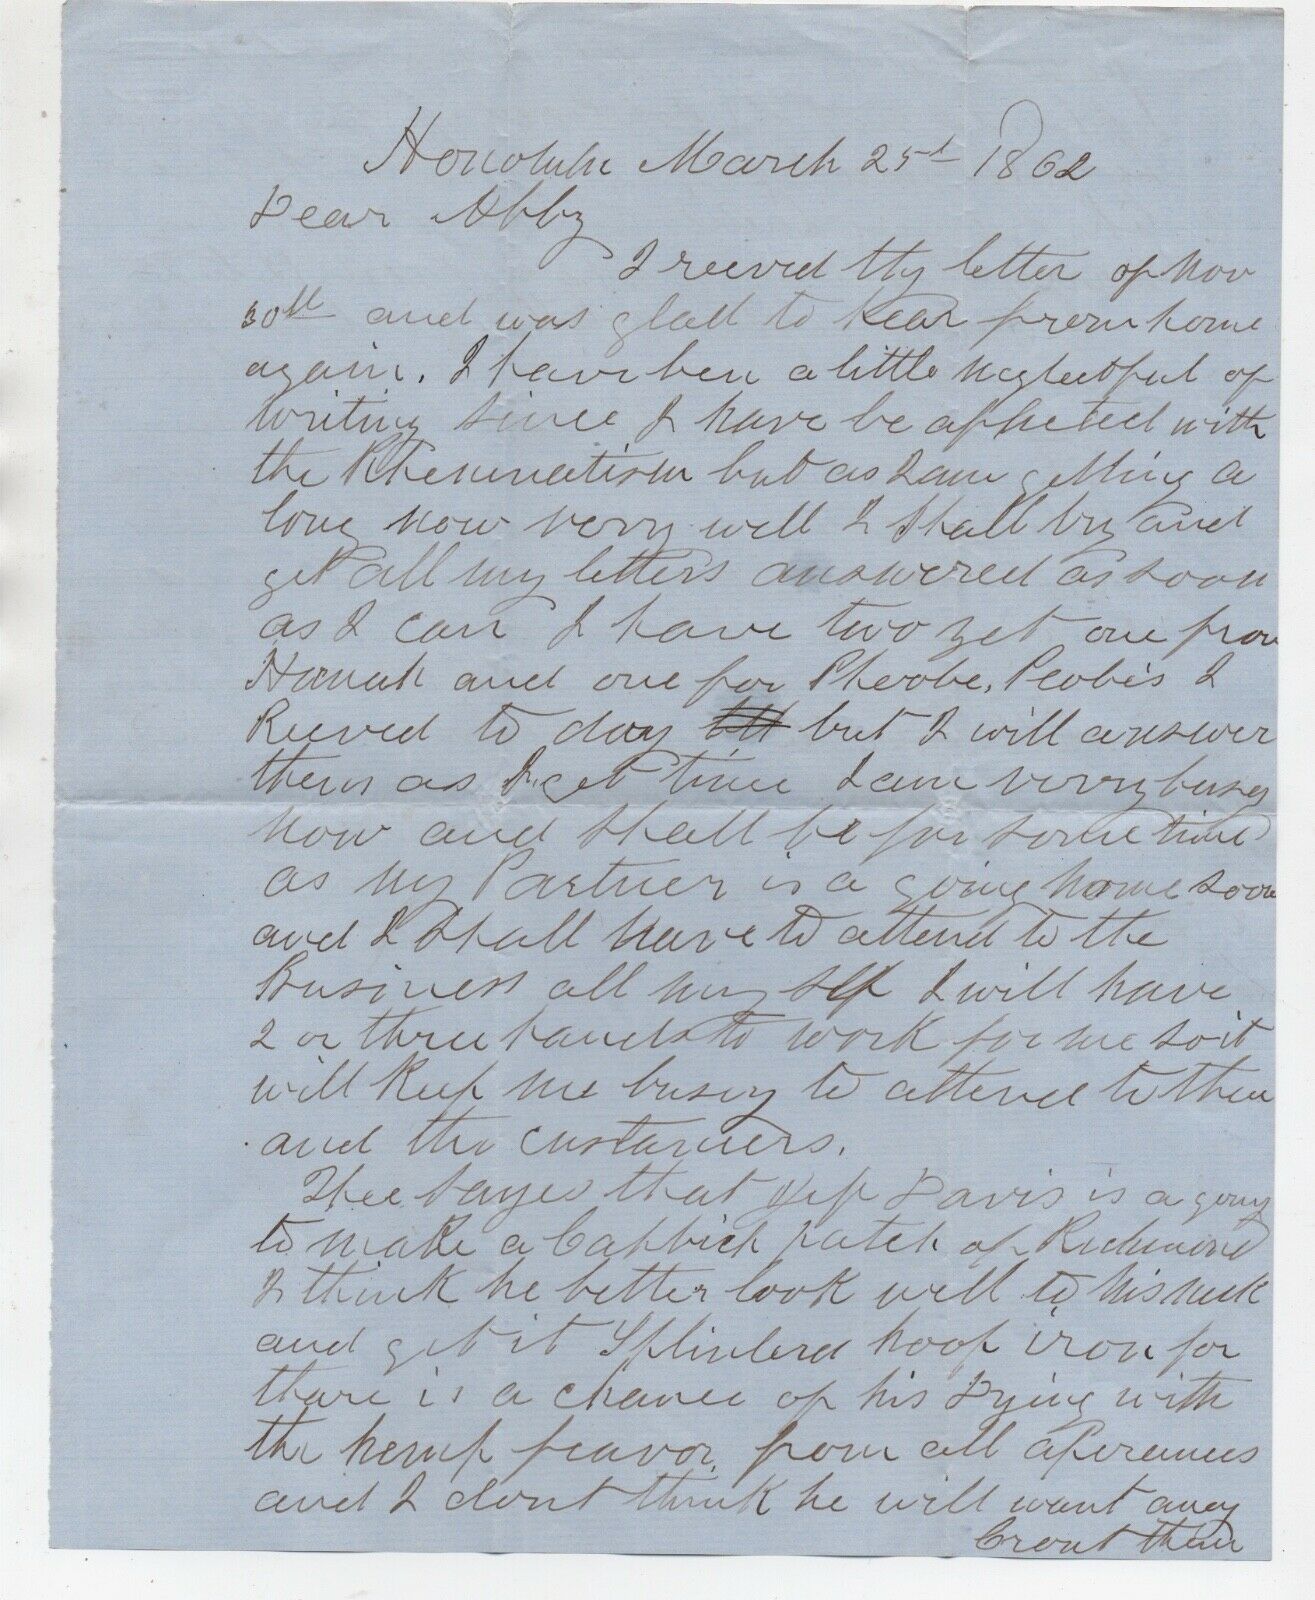 Honolulu March 25th 1862
Dear Abby
I reeved thy letter of Nov
30th and was glad to hear from home
again. I have ben a little neglectful of
writing since I have be aflicted with
the Rheumatism but as I am getting a
long now verry well I shall try and
get all my letters answered as soon
as I can I have two yet one from
Hanah and one for Pheobe, Peobis I
Reeved to day but I will answer
them as I get time I am verry busy
now and shall be for some time
as my Partner is a going home soon
and I shall have to attend to the
Business all my self I will have
2 or three hands to work for me so it
will Keep me busy to attend to them
and the custamers.
Thee sayes that Jef Davis is a going
to make a Cabbich patch of Richmond
I think he better look well to his neck
and get it Splinterd hoop iron for
thare is a chance of his Dying with
the hemp feavor, from all aperances
and I dont think he will want any
Crout then